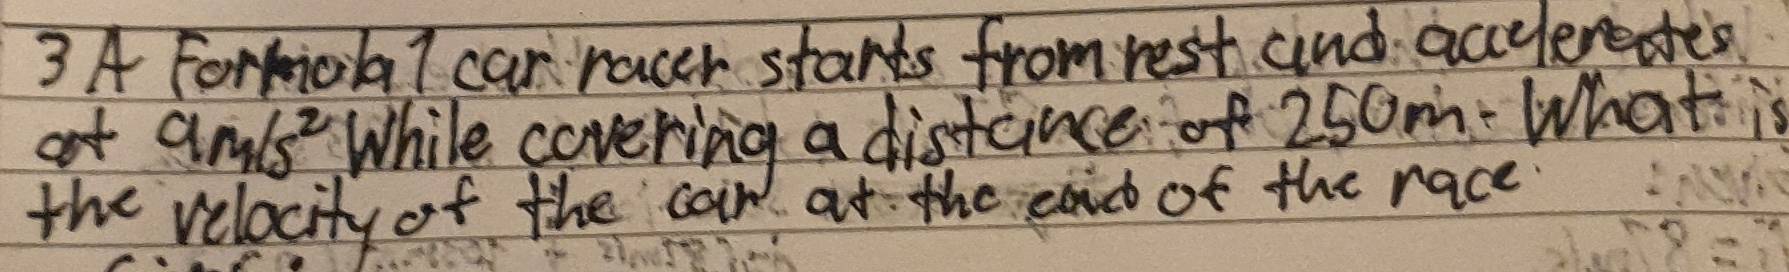 3 A Formola 1 car racer starts from rest and accelerates
at 9m/s² While covering a distance of 250m. What is
the velocity of the car at the end of the race.